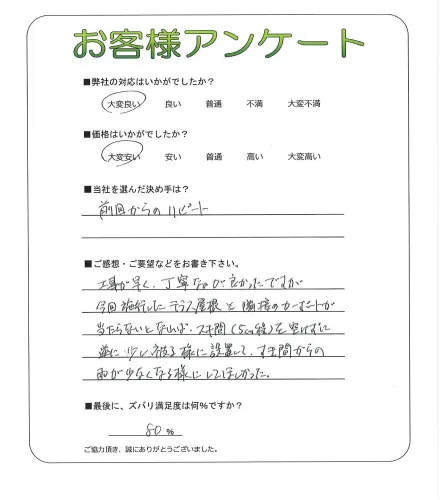 お客様アンケート
■弊社の対応はいかがでしたか？
大変良い 良い 普通 不満 大変不満
■価格はいかがでしたか？
大変安い 安い 普通 高い 大変高い
■当社を選んだ決め手は？
前回からのリピート
■ご感想・ご要望などをお書き下さい。
工事が早く、丁寧なのが良かったですが
今回施行したテラス屋根と隣接のカーポートが
当たらないとなれば、スキ間(5cm程)を空けずに
逆に少し被る様に設置して、すき間からの
雨が少なくなる様にしてほしかった。
■最後に、ズバリ満足度は何％ですか？
80％
ご協力頂き、誠にありがとうございました。